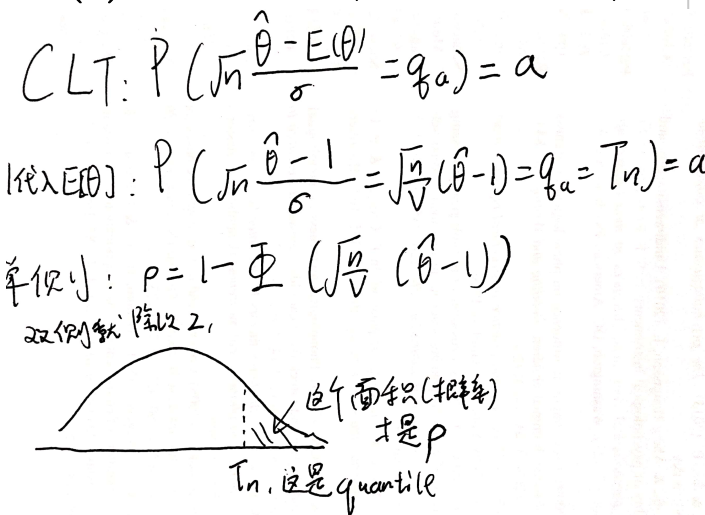 CLT: P (√n (θ̂ - E(θ)) / σ = qₐ) = a
1代入E[θ] : P (√n (θ̂ - 1) / σ = √(n/V) (θ̂ - 1) = qₐ = Tn) = a
单侧 : p = 1 - Φ (√(n/V) (θ̂ - 1))
双侧就除以2,
这个面积(概率)
才是p
Tn, 这是quantile